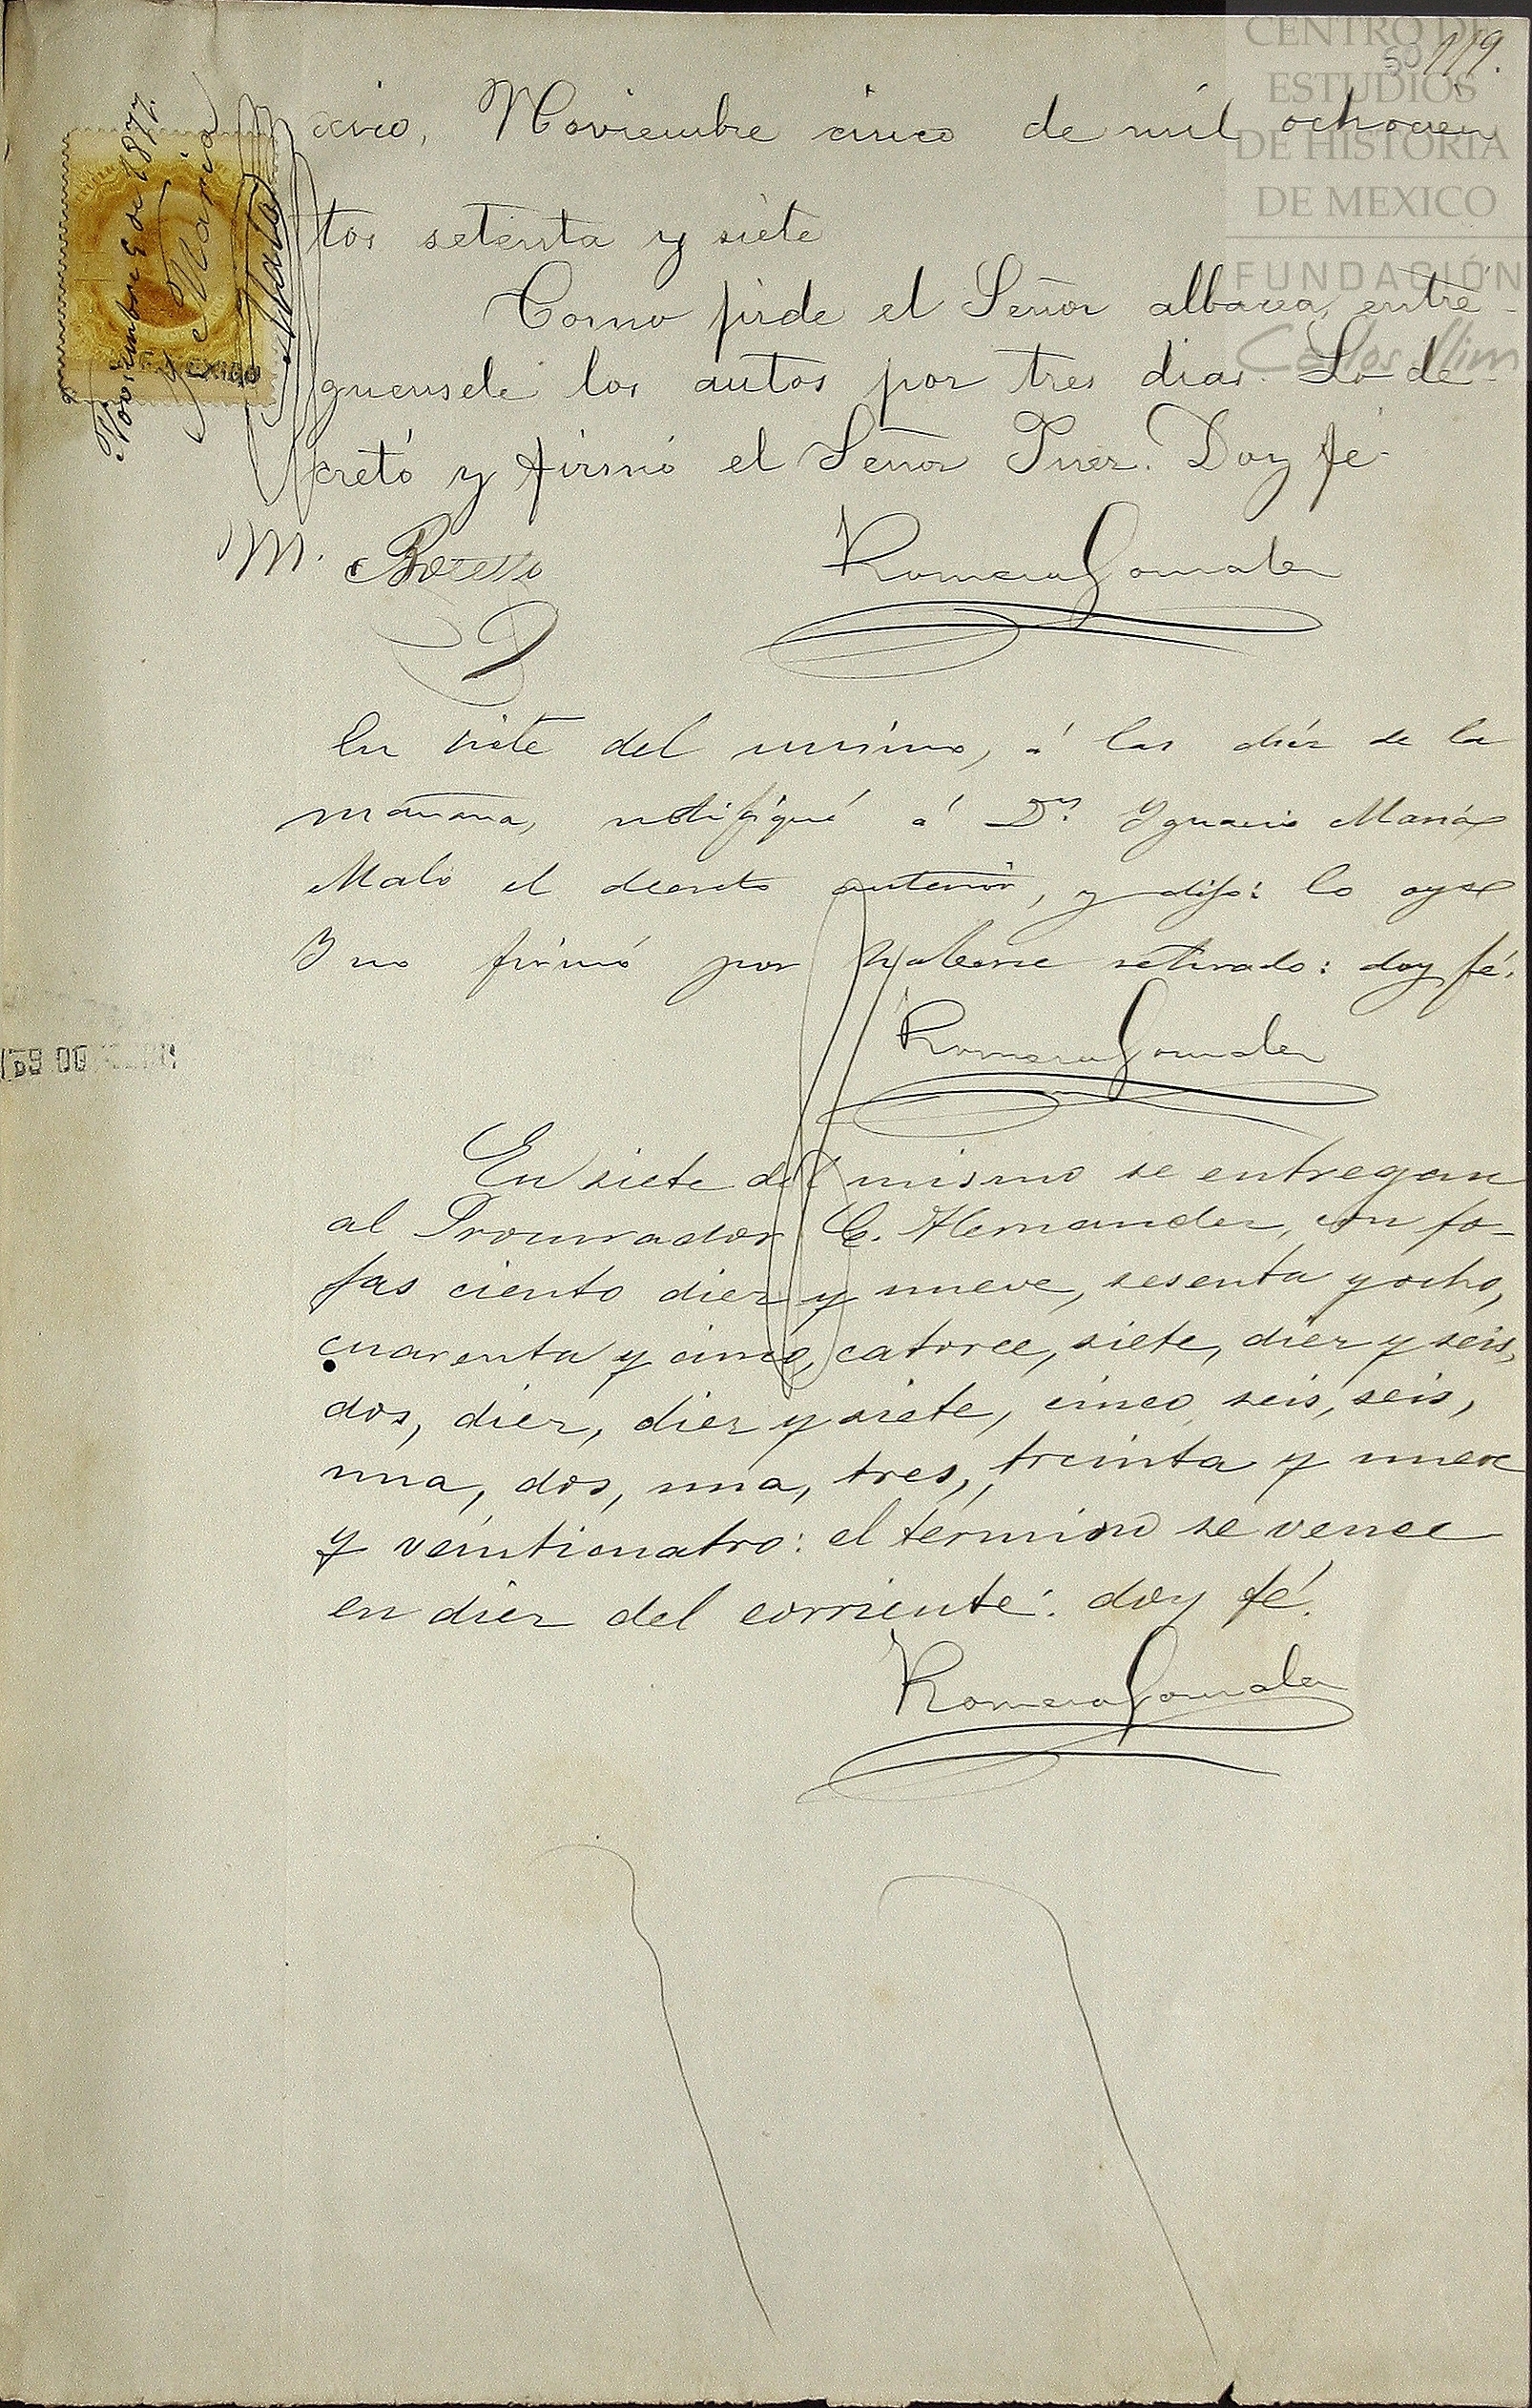 CENTRO DE
ESTUDIOS
DE HISTORIA
DE MEXICO
FUNDACIÓN
Carlos Slim
50 119.
Noviembre 5 de 1877.
Ygº María
Malo
MEXICO
xico, Noviembre cinco de mil ochocien
tos setenta y siete
Como pide el Señor albacea, entre-
guensele los autos por tres dias. Lo de-
cretó y firmó el Señor Juez. Doy fé.
M.
Romero Gonzalez
En siete del mismo, á las diéz de la
mañana, notifiqué á Dn. Ygnacio María
Malo el decreto anterior, y dijo: lo oye
y no firmó por haberse retirado: doy fé.
Romero Gonzalez
En siete del mismo se entregan
al Procurador C. Hernandez, con fo-
jas ciento diez y nueve, sesenta y ocho,
cuarenta y cinco, catorce, siete, diez y seis,
dos, diez, diez y siete, cinco, seis, seis,
una, dos, una, tres, treinta y nueve
y veinticuatro: el término se vence
en diez del corriente: doy fé.
Romero Gonzalez